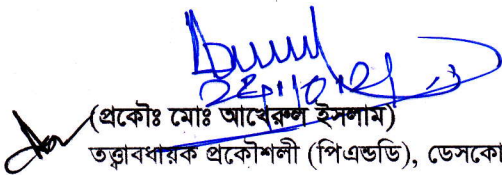 (প্রকৌঃ মোঃ আখেরুল ইসলাম)
তত্ত্বাবধায়ক প্রকৌশলী (পিএন্ডডি), ডেসকো